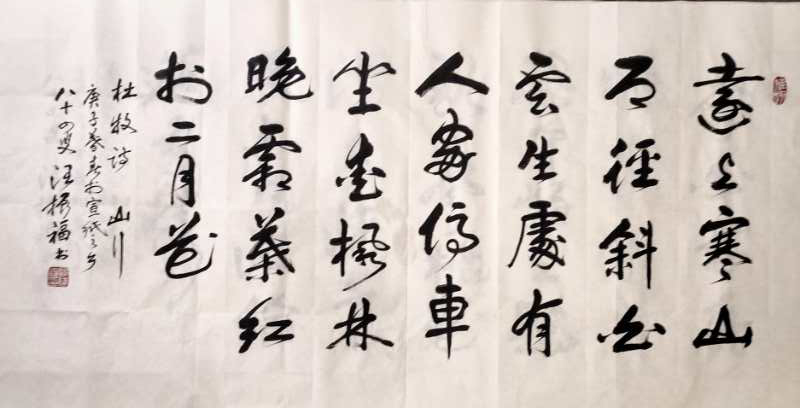 遠上寒山
石徑斜白
雲生處有
人家停車
坐愛楓林
晚霜葉紅
於二月花
杜牧詩 山行
庚子暮春於宣紙之乡
八十四叟汪振福书